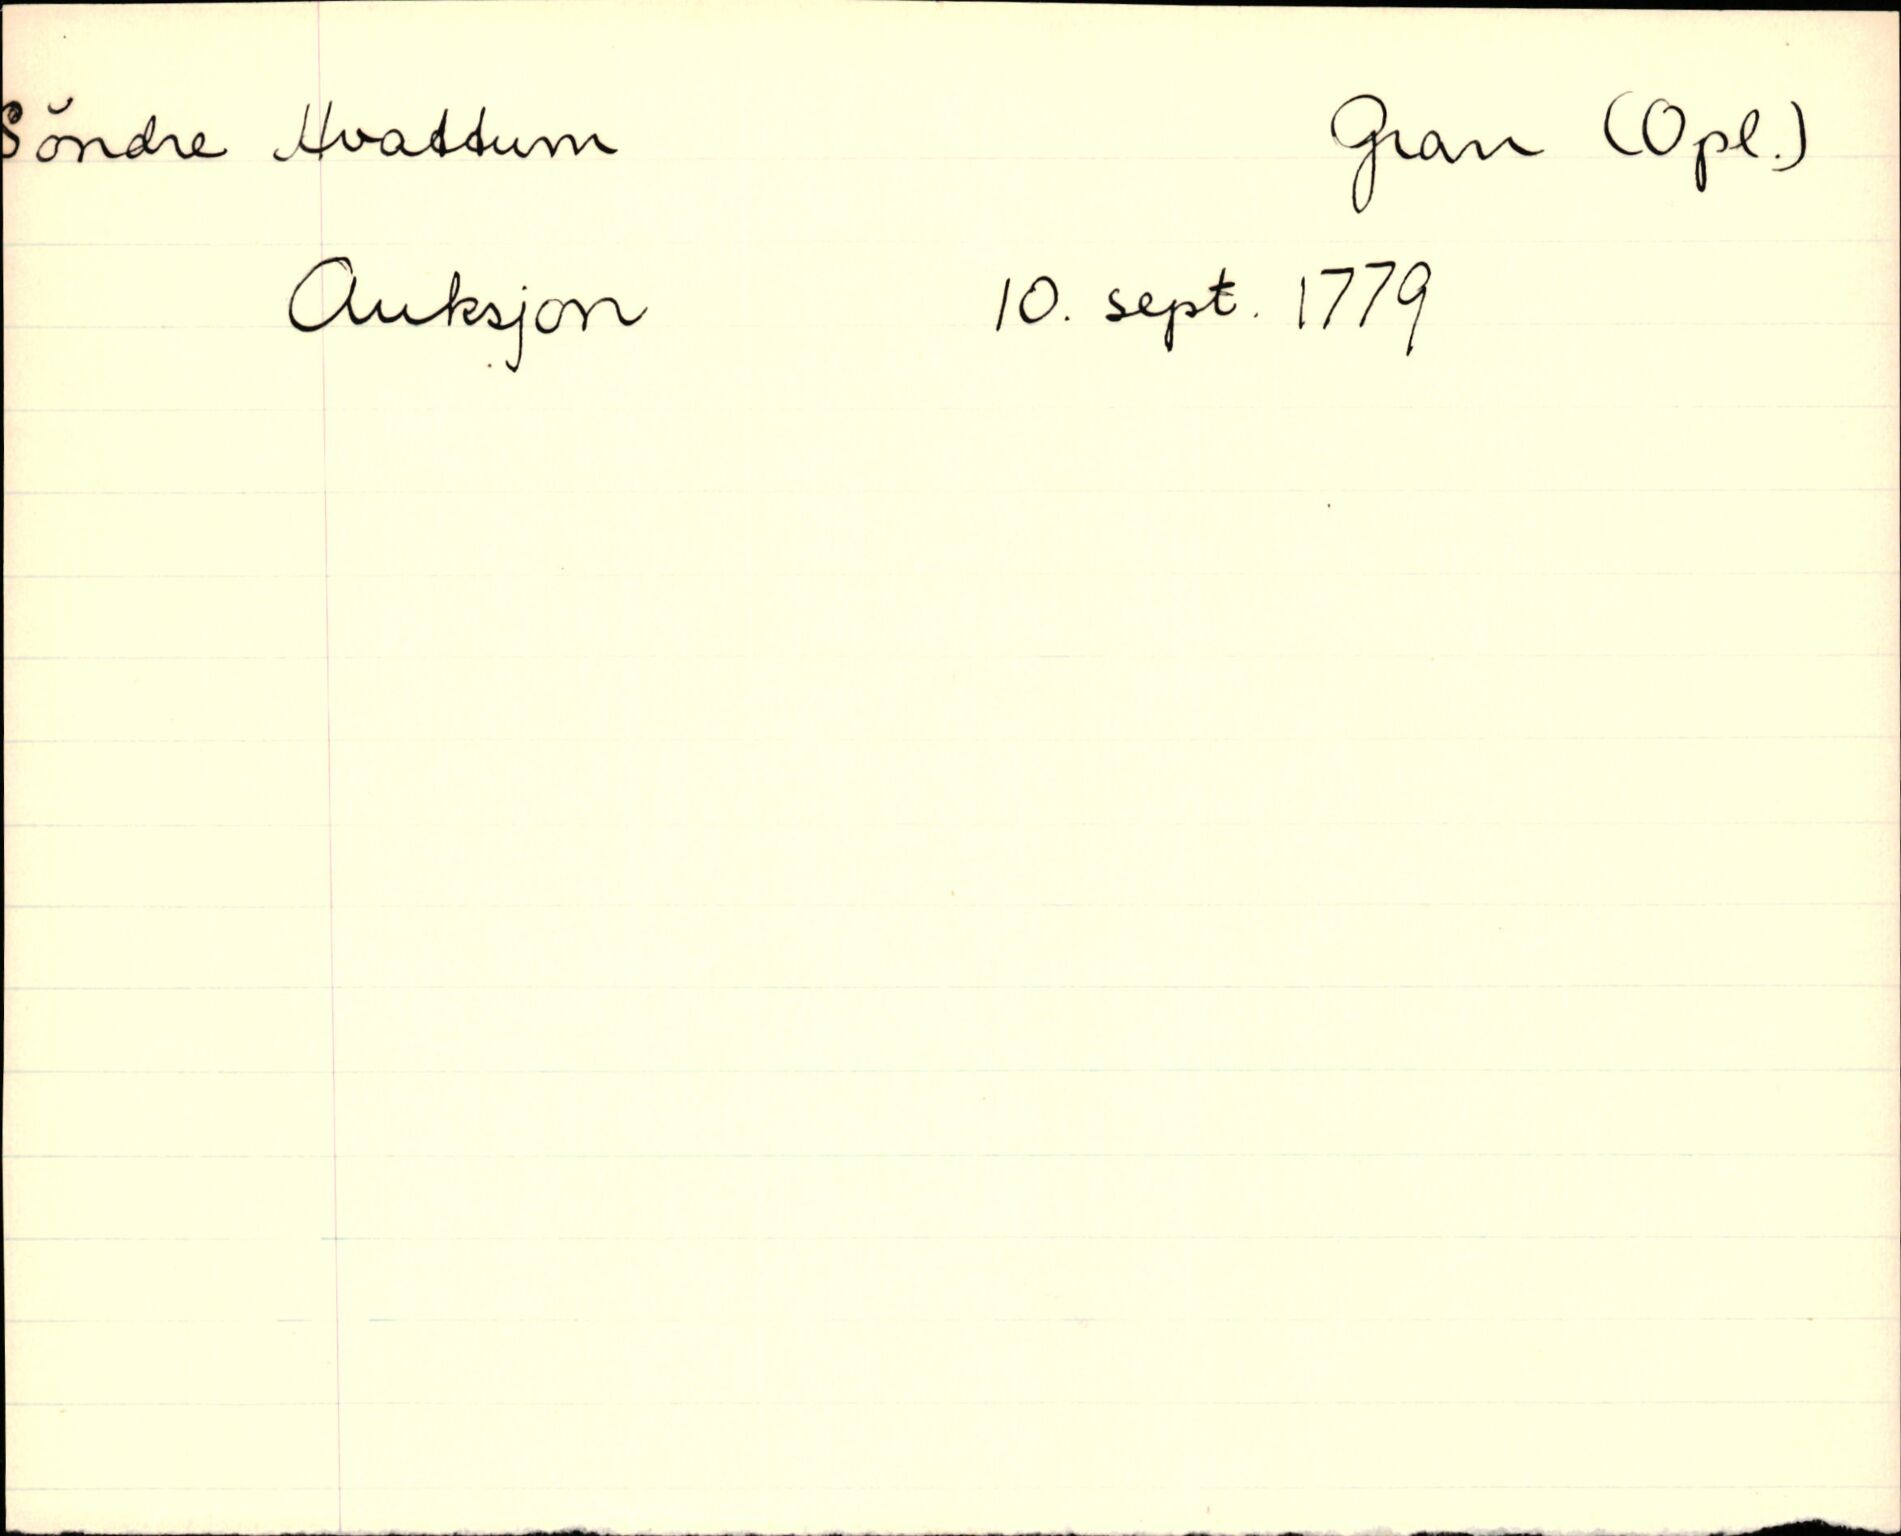 Söndre Hvattum Gran (Opl.)
Auksjon 10. sept. 1779